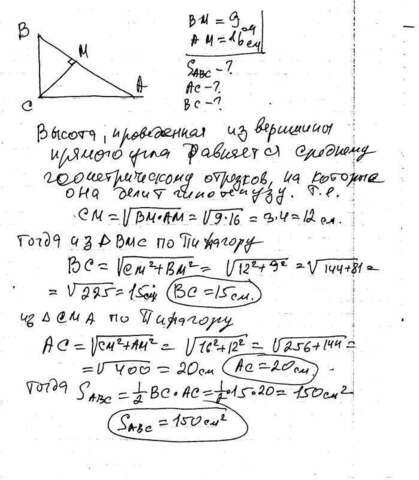 B
M
A
C
BM = 9 см
AM = 16 см
S_ABC - ?
AC - ?
BC - ?
Высота, проведенная из вершины
прямого угла равняется среднему
геометрическому отрезков, на которые
она делит гипотенузу. Т.е.
CM = √BM·AM = √9·16 = 3·4 = 12 см.
Тогда из △BMC по Пифагору
BC = √CM²+BM² = √12²+9² = √144+81 =
= √225 = 15см BC = 15см.
из △CMA по Пифагору
AC = √CM²+AM² = √16²+12² = √256+144 =
= √400 = 20см AC = 20см.
Тогда S_ABC = 1/2 BC·AC = 1/2·15·20 = 150см²
S_ABC = 150см²